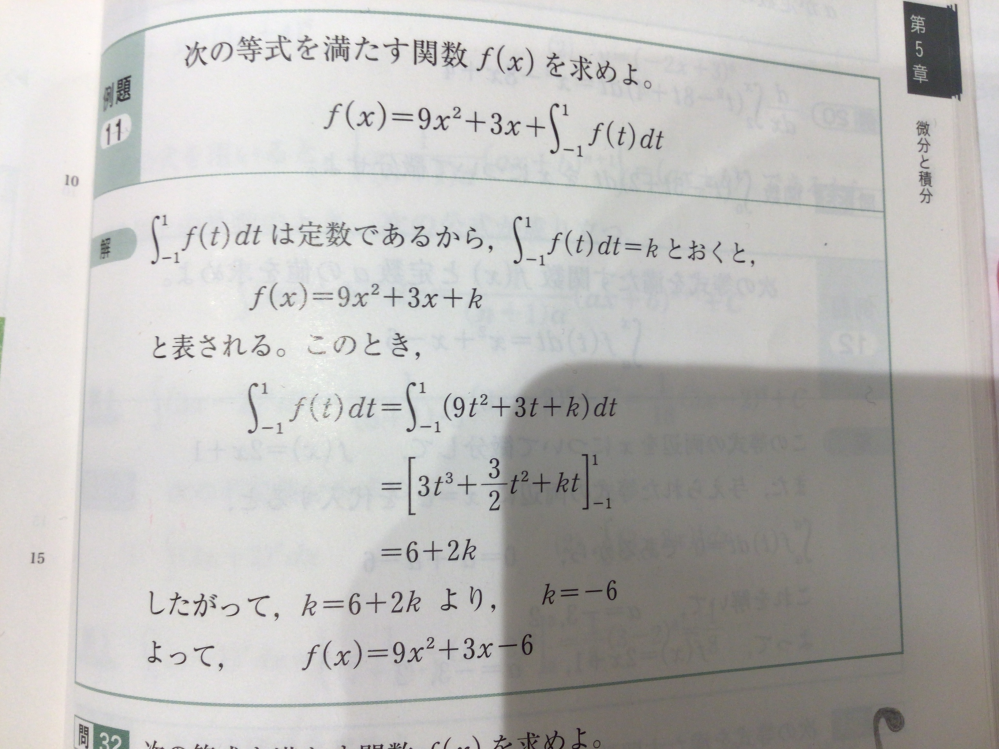 第5章
微分と積分
例題 11
次の等式を満たす関数 f(x) を求めよ。
f(x)=9x²+3x+∫₋₁¹ f(t)dt
10
解
∫₋₁¹ f(t)dt は定数であるから, ∫₋₁¹ f(t)dt=k とおくと,
f(x)=9x²+3x+k
と表される。このとき,
∫₋₁¹ f(t)dt=∫₋₁¹ (9t²+3t+k)dt
=[3t³+3/2 t²+kt]₋₁¹
15
=6+2k
したがって, k=6+2k より, k=-6
よって, f(x)=9x²+3x-6
問32 次の等式を満たす関数 f(x) を求めよ。